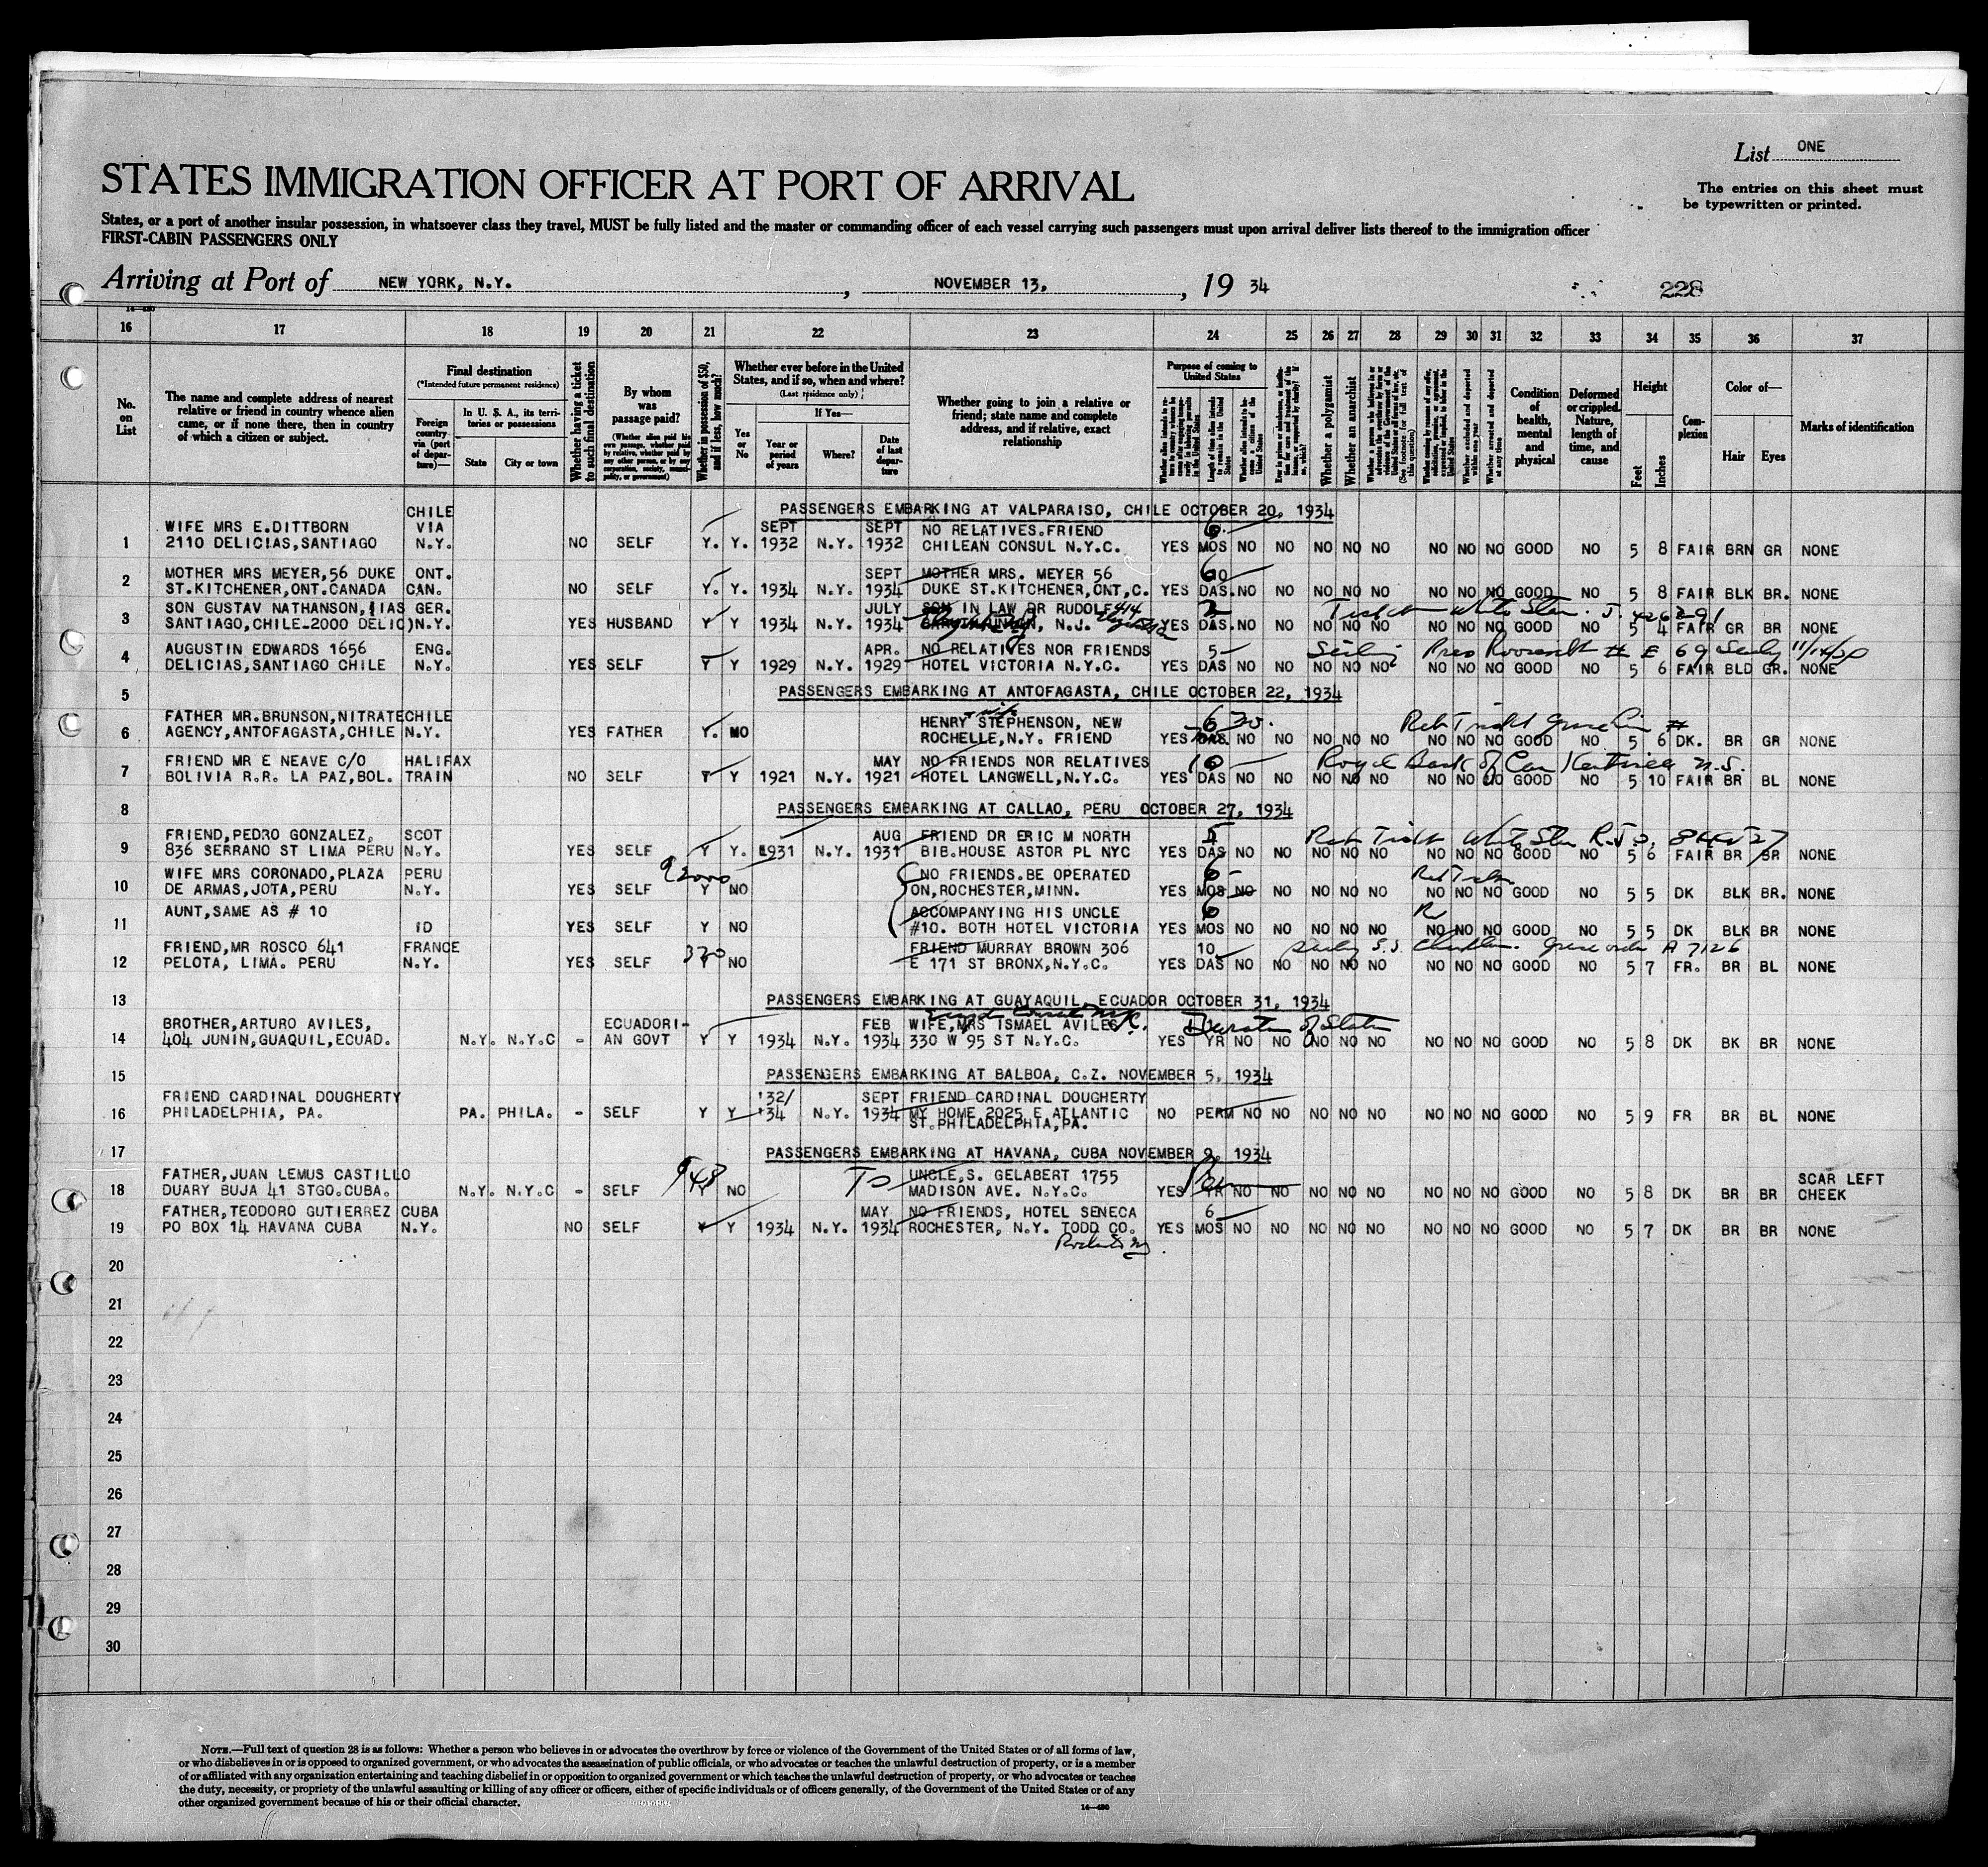 List ONE
STATES IMMIGRATION OFFICER AT PORT OF ARRIVAL
The entries on this sheet must
be typewritten or printed.
States, or a port of another insular possession, in whatsoever class they travel, MUST be fully listed and the master or commanding officer of each vessel carrying such passengers must upon arrival deliver lists thereof to the immigration officer
FIRST-CABIN PASSENGERS ONLY
Arriving at Port of NEW YORK, N.Y. , NOVEMBER 13, , 19 34
228
16 17 18 19 20 21 22 23 24 25 26 27 28 29 30 31 32 33 34 35 36 37
No. on List
The name and complete address of nearest relative or friend in country whence alien came, or if none there, then in country of which a citizen or subject.
Final destination
(*Intended future permanent residence)
Foreign country via (port of departure)—
In U. S. A., its territories or possessions
State City or town
Whether having a ticket to such final destination
By whom was passage paid?
(Whether alien paid his own passage, whether paid by relative, whether paid by any other person, or by any corporation, society, municipality, or government)
Whether in possession of $50, and if less, how much?
Whether ever before in the United States, and if so, when and where?
(Last residence only)
Yes or No
If Yes—
Year or period of years Where? Date of last departure
Whether going to join a relative or friend; state name and complete address, and if relative, exact relationship
Purpose of coming to United States
Whether a polygamist
Whether an anarchist
Condition of health, mental and physical
Deformed or crippled. Nature, length of time, and cause
Height
Feet Inches
Complexion
Color of—
Hair Eyes
Marks of identification
PASSENGERS EMBARKING AT VALPARAISO, CHILE OCTOBER 20, 1934
CHILE
WIFE MRS E.DITTBORN VIA SEPT SEPT NO RELATIVES.FRIEND 6
1 2110 DELICIAS,SANTIAGO N.Y. NO SELF Y. Y. 1932 N.Y. 1932 CHILEAN CONSUL N.Y.C. YES MOS NO NO NO NO NO NO NO NO GOOD NO 5 8 FAIR BRN GR NONE
MOTHER MRS MEYER,56 DUKE ONT. SEPT MOTHER MRS. MEYER 56
2 ST.KITCHENER,ONT.CANADA CAN. NO SELF Y. Y. 1934 N.Y. 1934 DUKE ST.KITCHENER,ONT,C. YES DAS. NO NO NO NO NO NO NO NO GOOD NO 5 8 FAIR BLK BR. NONE
SON GUSTAV NATHANSON, GER. JULY SON IN LAW DR RUDOLF 414
3 SANTIAGO,CHILE-2000 DELIC) N.Y. YES HUSBAND Y Y 1934 N.Y. 1934 , N.J. YES DAS. NO NO NO NO NO NO NO NO GOOD NO 5 4 FAIR GR BR NONE
AUGUSTIN EDWARDS 1656 ENG. APR. NO RELATIVES NOR FRIENDS 5 Pres Roosevelt # E 69
4 DELICIAS,SANTIAGO CHILE N.Y. YES SELF Y Y 1929 N.Y. 1929 HOTEL VICTORIA N.Y.C. YES DAS NO NO NO NO NO NO NO NO GOOD NO 5 6 FAIR BLD GR. NONE
5 PASSENGERS EMBARKING AT ANTOFAGASTA, CHILE OCTOBER 22, 1934
FATHER MR.BRUNSON,NITRATE CHILE HENRY STEPHENSON, NEW 6
6 AGENCY,ANTOFAGASTA,CHILE N.Y. YES FATHER Y. NO ROCHELLE,N.Y. FRIEND YES DAS. NO NO NO NO NO NO NO NO GOOD NO 5 6 DK. BR GR NONE
FRIEND MR E NEAVE C/O HALIFAX MAY NO FRIENDS NOR RELATIVES 10 Royal Bank of Can
7 BOLIVIA R.R. LA PAZ,BOL. TRAIN NO SELF Y Y 1921 N.Y. 1921 HOTEL LANGWELL,N.Y.C. YES DAS NO NO NO NO NO NO NO NO GOOD NO 5 10 FAIR BR BL NONE
8 PASSENGERS EMBARKING AT CALLAO, PERU OCTOBER 27, 1934
FRIEND,PEDRO GONZALEZ, SCOT AUG FRIEND DR ERIC M NORTH 5
9 836 SERRANO ST LIMA PERU N.Y. YES SELF Y Y. 1931 N.Y. 1931 BIB.HOUSE ASTOR PL NYC YES DAS NO NO NO NO NO NO NO NO GOOD NO 5 6 FAIR BR BR NONE
WIFE MRS CORONADO,PLAZA PERU NO FRIENDS.BE OPERATED 6
10 DE ARMAS,JOTA,PERU N.Y. YES SELF Y NO ON,ROCHESTER,MINN. YES MOS NO NO NO NO NO NO NO NO GOOD NO 5 5 DK BLK BR. NONE
AUNT,SAME AS # 10 ACCOMPANYING HIS UNCLE 6
11 ID YES SELF Y NO #10. BOTH HOTEL VICTORIA YES MOS NO NO NO NO NO NO NO NO GOOD NO 5 5 DK BLK BR NONE
FRIEND,MR ROSCO 641 FRANCE FRIEND MURRAY BROWN 306 10
12 PELOTA, LIMA. PERU N.Y. YES SELF Y NO E 171 ST BRONX,N.Y.C. YES DAS NO NO NO NO NO NO NO NO GOOD NO 5 7 FR. BR BL NONE
13 PASSENGERS EMBARKING AT GUAYAQUIL, ECUADOR OCTOBER 31, 1934
BROTHER,ARTURO AVILES, ECUADORI- FEB WIFE,MRS ISMAEL AVILES Duration of Status
14 404 JUNIN,GUAQUIL,ECUAD. N.Y. N.Y.C - AN GOVT Y Y 1934 N.Y. 1934 330 W 95 ST N.Y.C. YES YR NO NO NO NO NO NO NO NO GOOD NO 5 8 DK BK BR NONE
15 PASSENGERS EMBARKING AT BALBOA, C.Z. NOVEMBER 5, 1934
FRIEND CARDINAL DOUGHERTY '32/ SEPT FRIEND CARDINAL DOUGHERTY
16 PHILADELPHIA, PA. PA. PHILA. - SELF Y Y '34 N.Y. 1934 MY HOME 2025 E ATLANTIC NO PERM NO NO NO NO NO NO NO NO GOOD NO 5 9 FR BR BL NONE
ST.PHILADELPHIA,PA.
17 PASSENGERS EMBARKING AT HAVANA, CUBA NOVEMBER 9, 1934
FATHER,JUAN LEMUS CASTILLO UNCLE,S. GELABERT 1755 SCAR LEFT
18 DUARY BUJA 41 STGO.CUBA. N.Y. N.Y.C - SELF Y NO MADISON AVE. N.Y.C. YES YR NO NO NO NO NO NO NO NO GOOD NO 5 8 DK BR BR CHEEK
FATHER,TEODORO GUTIERREZ CUBA MAY NO FRIENDS, HOTEL SENECA 6
19 PO BOX 14 HAVANA CUBA N.Y. NO SELF Y Y 1934 N.Y. 1934 ROCHESTER, N.Y. TODD CO. YES MOS NO NO NO NO NO NO NO NO GOOD NO 5 7 DK BR BR NONE
20
21
22
23
24
25
26
27
28
29
30
NOTE.—Full text of question 28 is as follows: Whether a person who believes in or advocates the overthrow by force or violence of the Government of the United States or of all forms of law,
or who disbelieves in or is opposed to organized government, or who advocates the assassination of public officials, or who advocates or teaches the unlawful destruction of property, or is a member
of or affiliated with any organization entertaining and teaching disbelief in or opposition to organized government or which teaches the unlawful destruction of property, or who advocates or teaches
the duty, necessity, or propriety of the unlawful assaulting or killing of any officer or officers, either of specific individuals or of officers generally, of the Government of the United States or of any
other organized government because of his or their official character.
14—430